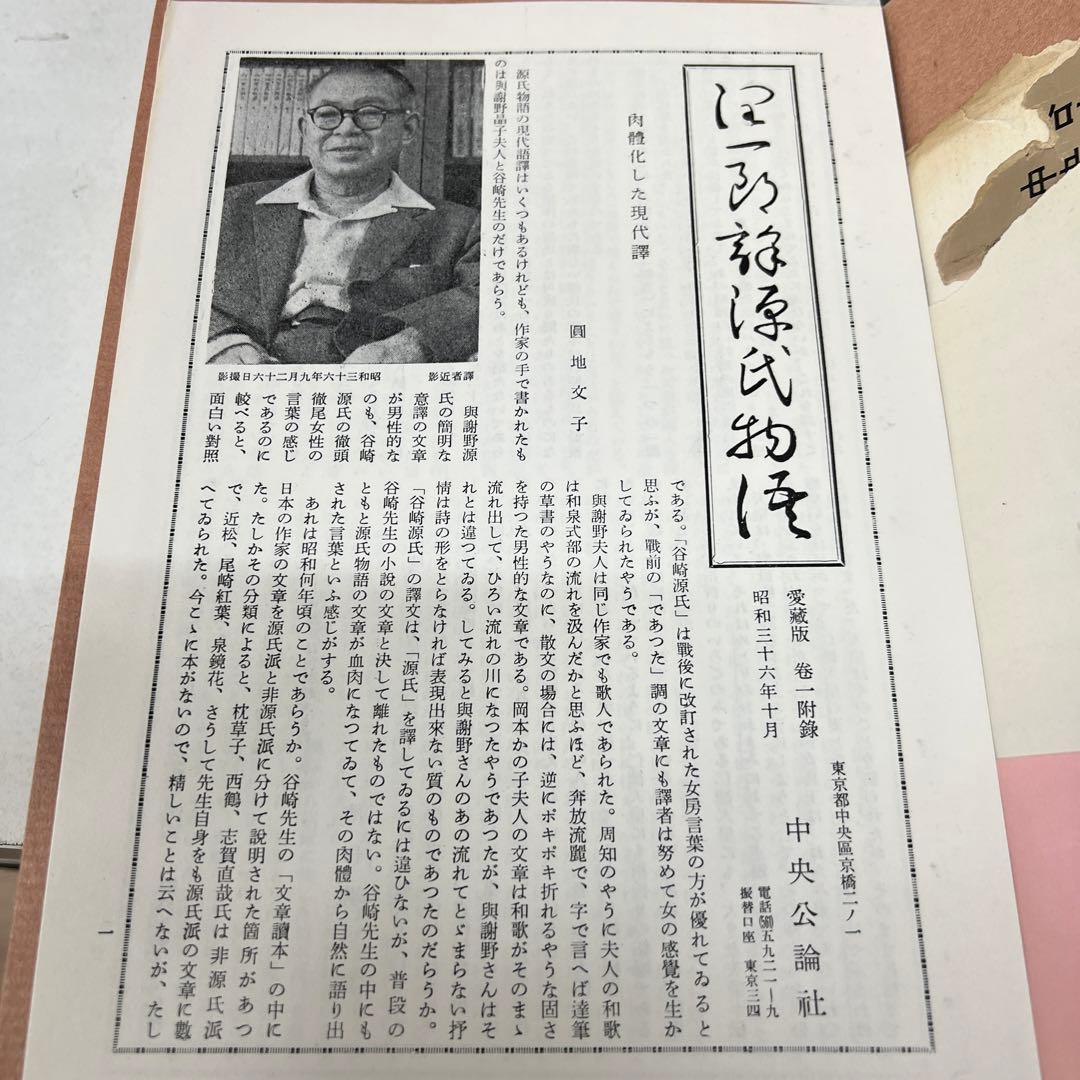 潤一郎譯源氏物語
愛藏版 卷一附錄
昭和三十六年十月
東京都中央區京橋二ノ一
中央公論社
電話(561)五九二一―九
振替口座 東京三四
肉體化した現代譯
圓地文子
源氏物語の現代語譯はいくつもあるけれども、作家の手で書かれたも
のは與謝野晶子夫人と谷崎先生のだけであらう。
譯者近影 昭和三十六年九月二十六日撮影
與謝野源
氏の簡明な
意譯の文章
が男性的な
のも、谷崎
源氏の徹頭
徹尾女性の
言葉の感じ
であるのに
較べると、
面白い對照
である。「谷崎源氏」は戰後に改訂された女房言葉の方が優れてゐると
思ふが、戰前の「であつた」調の文章にも譯者は努めて女の感覺を生か
してゐられたやうである。
與謝野夫人は同じ作家でも歌人であられた。周知のやうに夫人の和歌
は和泉式部の流れを汲んだかと思ふほど、奔放流麗で、字で言へば達筆
の草書のやうなのに、散文の場合には、逆にポキポキ折れるやうな固さ
を持つた男性的な文章である。岡本かの子夫人の文章は和歌がそのまゝ
流れ出して、ひろい流れの川になつたやうであつたが、與謝野さんはそ
れとは違つてゐる。してみると與謝野さんのあの流れてとゞまらない抒
情は詩の形をとらなければ表現出來ない質のものであつたのだらうか。
「谷崎源氏」の譯文は、「源氏」を譯してゐるには違ひないが、普段の
谷崎先生の小說の文章と決して離れたものではない。谷崎先生の中にも
ともと源氏物語の文章が血肉になつてゐて、その肉體から自然に語り出
された言葉といふ感じがする。
あれは昭和何年頃のことであらうか。谷崎先生の「文章讀本」の中に
日本の作家の文章を源氏派と非源氏派に分けて說明された箇所があつ
た。たしかその分類によると、枕草子、西鶴、志賀直哉氏は非源氏派
で、近松、尾崎紅葉、泉鏡花、さうして先生自身をも源氏派の文章に數
へてゐられた。今こゝに本がないので、精しいことは云へないが、たし
一